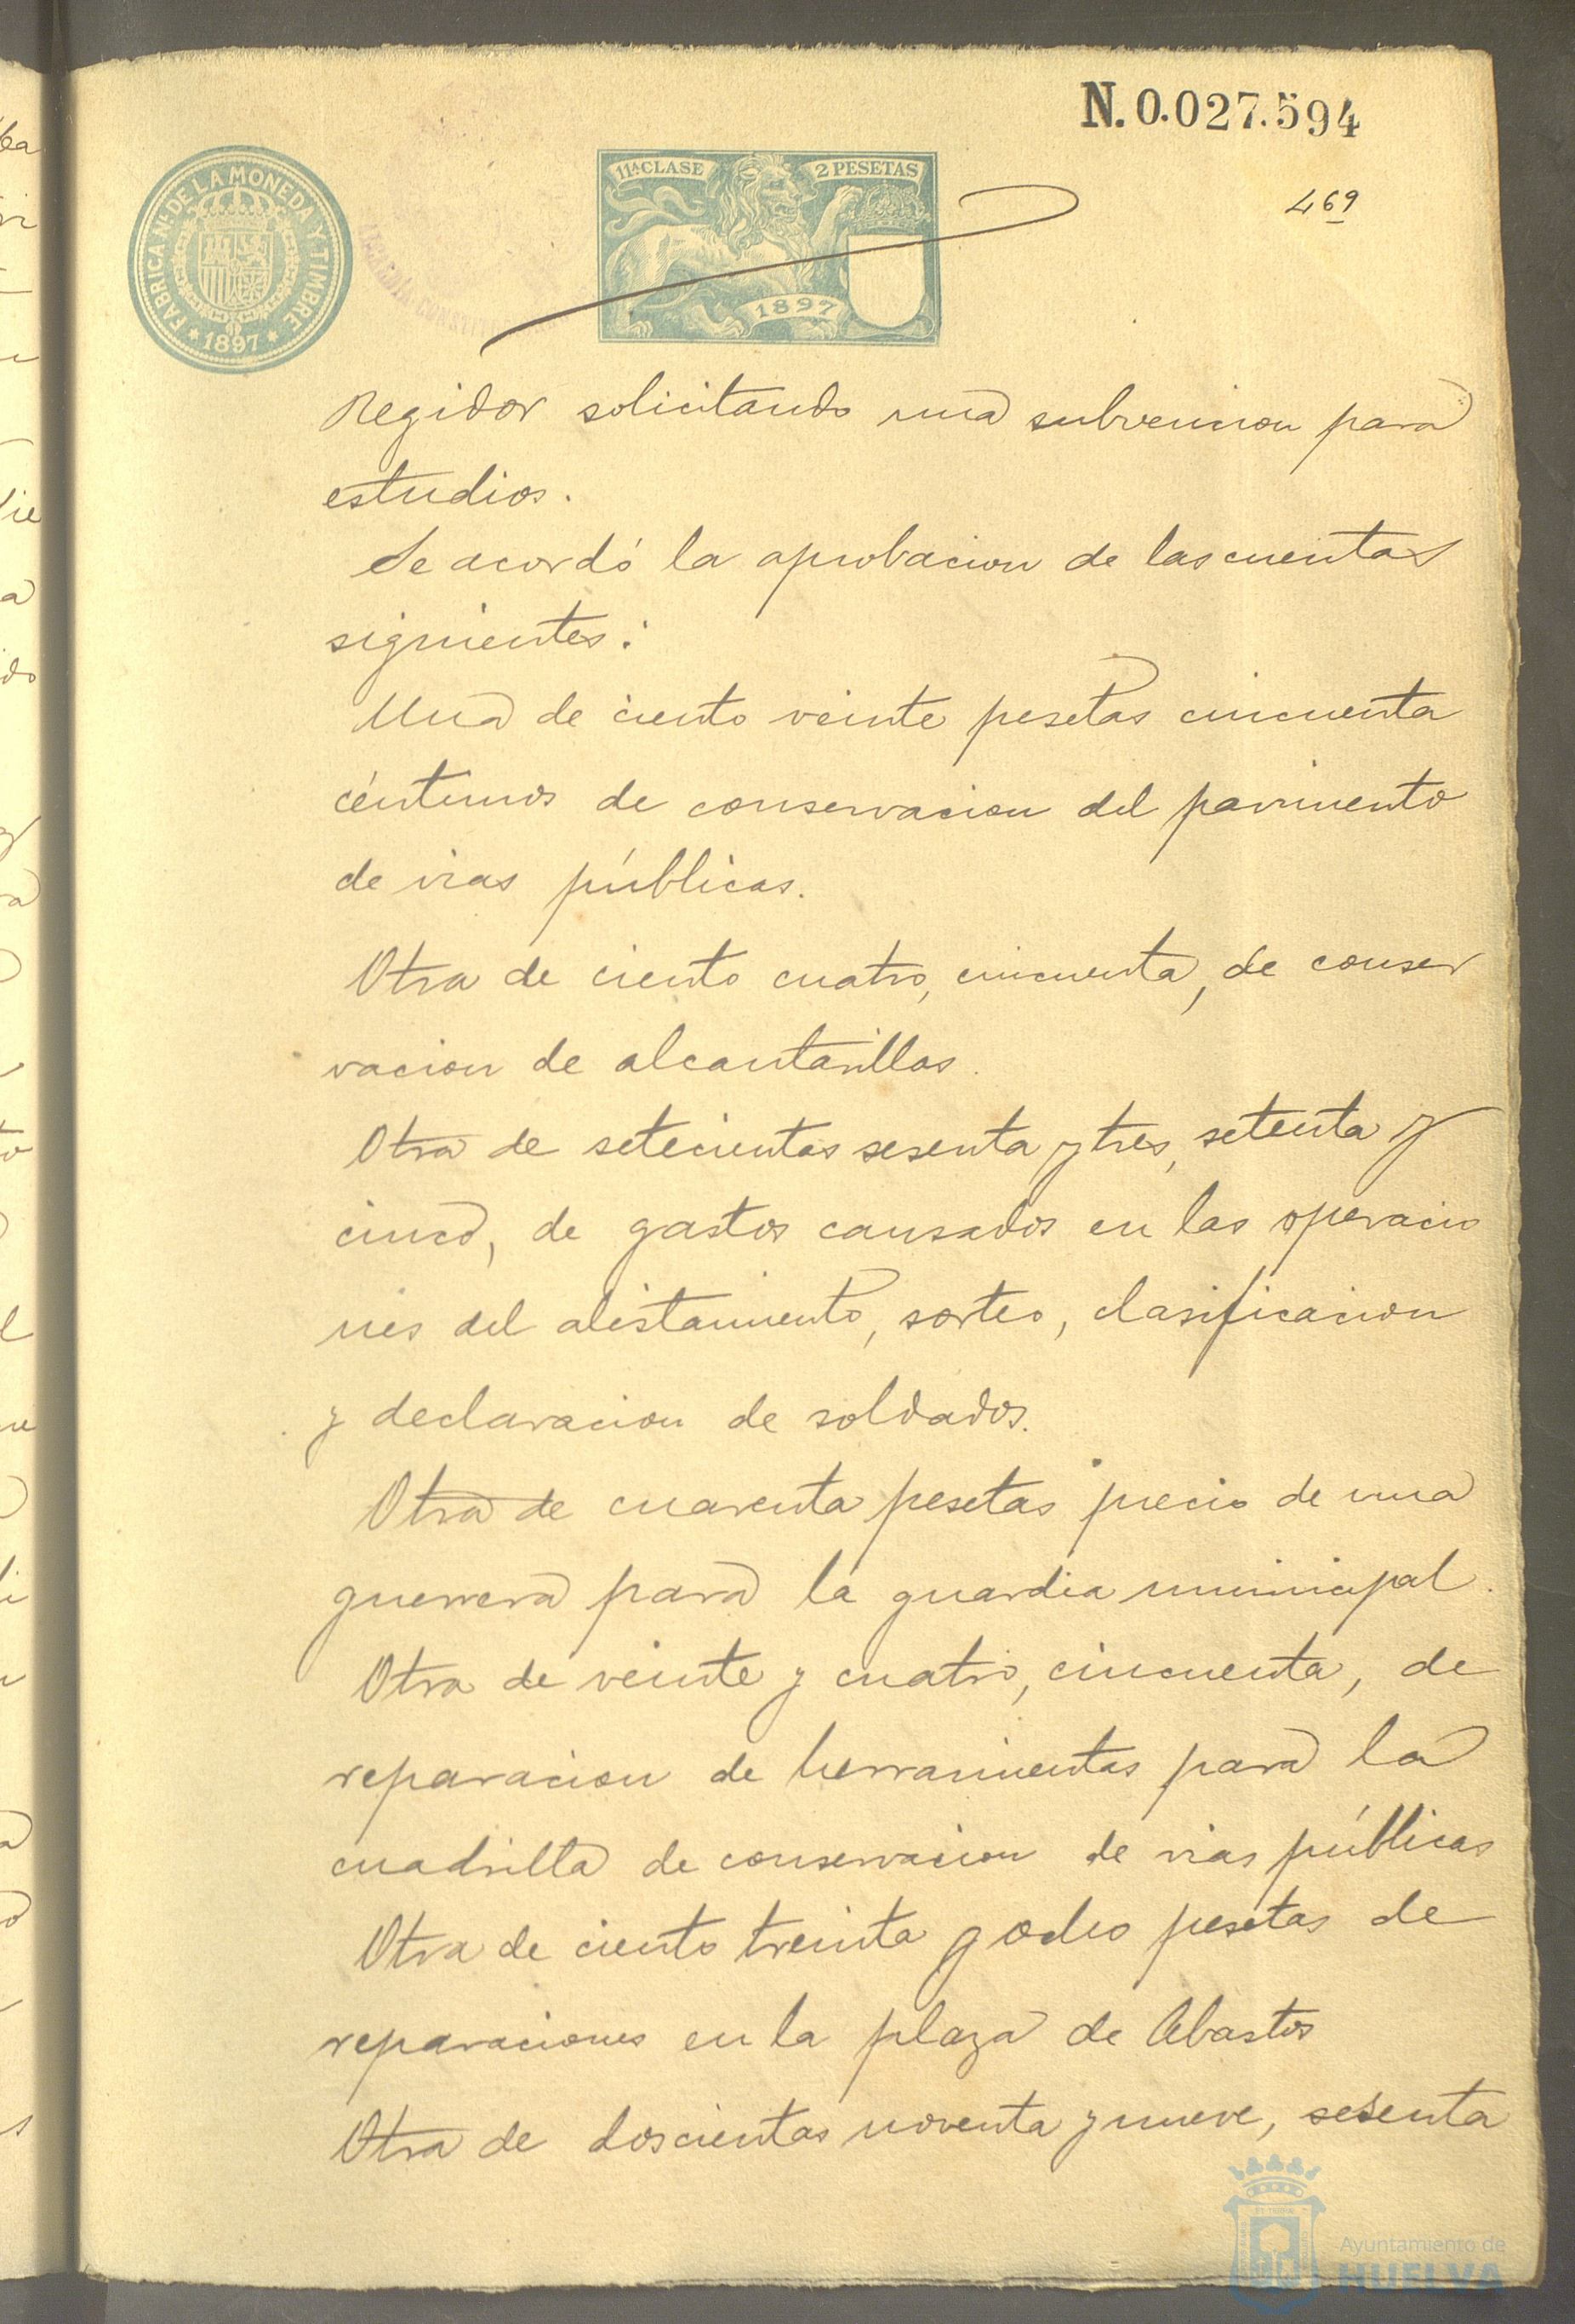 N.0.027.594
469
FABRICA Nl. DE LA MONEDA Y TIMBRE
* 1897 *
11ª CLASE
2 PESETAS
1897
Regidor solicitando una subvencion para
estudios.
Se acordó la aprobacion de las cuentas
siguientes:
Una de ciento veinte pesetas cincuenta
céntimos de conservacion del pavimento
de vias públicas.
Otra de ciento cuatro, cincuenta, de conser
vacion de alcantarillas.
Otra de setecientas sesenta y tres, setenta y
cinco, de gastos causados en las operacio
nes del alistamiento, sorteo, clasificacion
y declaracion de soldados.
Otra de cuarenta pesetas precio de una
guerrera para la guardia municipal.
Otra de veinte y cuatro, cincuenta, de
reparacion de herramientas para la
cuadrilla de conservacion de vias públicas
Otra de ciento treinta y ocho pesetas de
reparaciones en la plaza de Abastos
Otra de doscientas noventa y nueve, sesenta
Ayuntamiento de
HUELVA